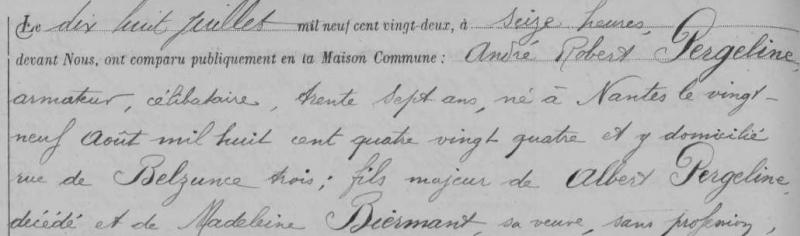 Le dix huit juillet mil neuf cent vingt-deux, à seize heures,
devant Nous, ont comparu publiquement en la Maison Commune : André Robert Pergeline,
armateur, célibataire, trente sept ans, né à Nantes le vingt-
neuf Août mil huit cent quatre vingt quatre et y domicilié
rue de Belzunce trois ; fils majeur de Albert Pergeline,
décédé et de Madeleine Biermant, sa veuve, sans profession,